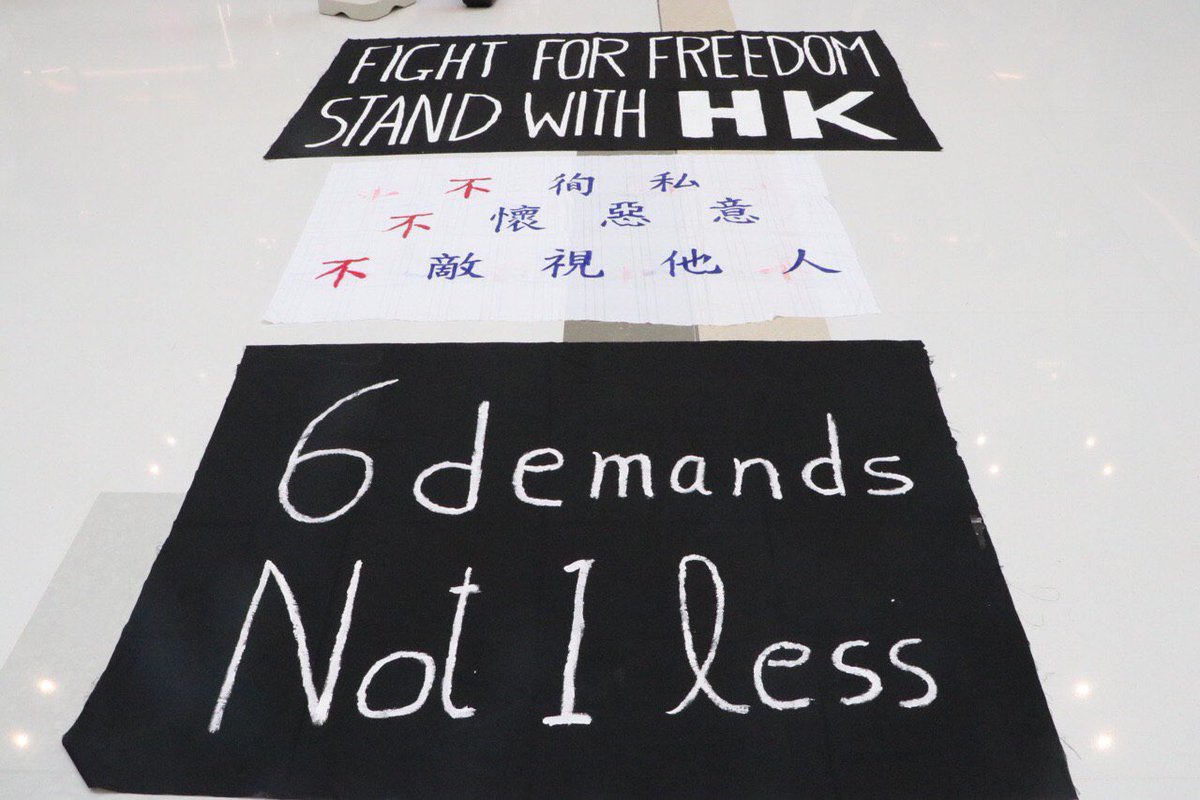 FIGHT FOR FREEDOM
STAND WITH HK
不徇私
不懷惡意
不敵視他人
6 demands
Not 1 less